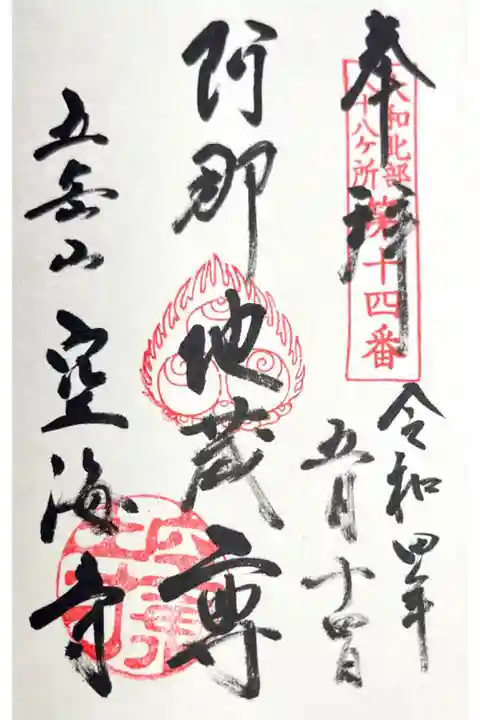 奉拝
大和北部
八十八ヶ所
第十四番
令和四年
五月十四日
阿那地蔵尊
五岳山 空海寺